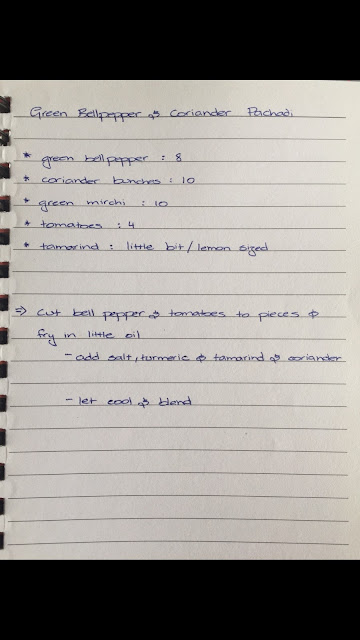 Green Bellpepper & Coriander Pachadi
* green bellpepper : 8
* coriander bunches : 10
* green mirchi : 10
* tomatoes : 4
* tamarind : little bit / lemon sized
⇒ Cut bell pepper & tomatoes to pieces &
fry in little oil
- add salt, turmeric & tamarind & coriander
- let cool & blend